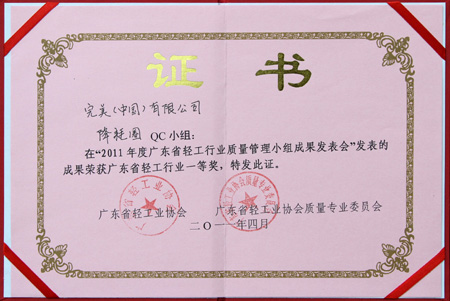 证 书
完美(中国)有限公司
降耗圈 QC 小组:
在“2011 年度广东省轻工行业质量管理小组成果发表会”发表的
成果荣获广东省轻工行业一等奖,特发此证。
广东省轻工业协会 广东省轻工业协会质量专业委员会
二〇一一年四月